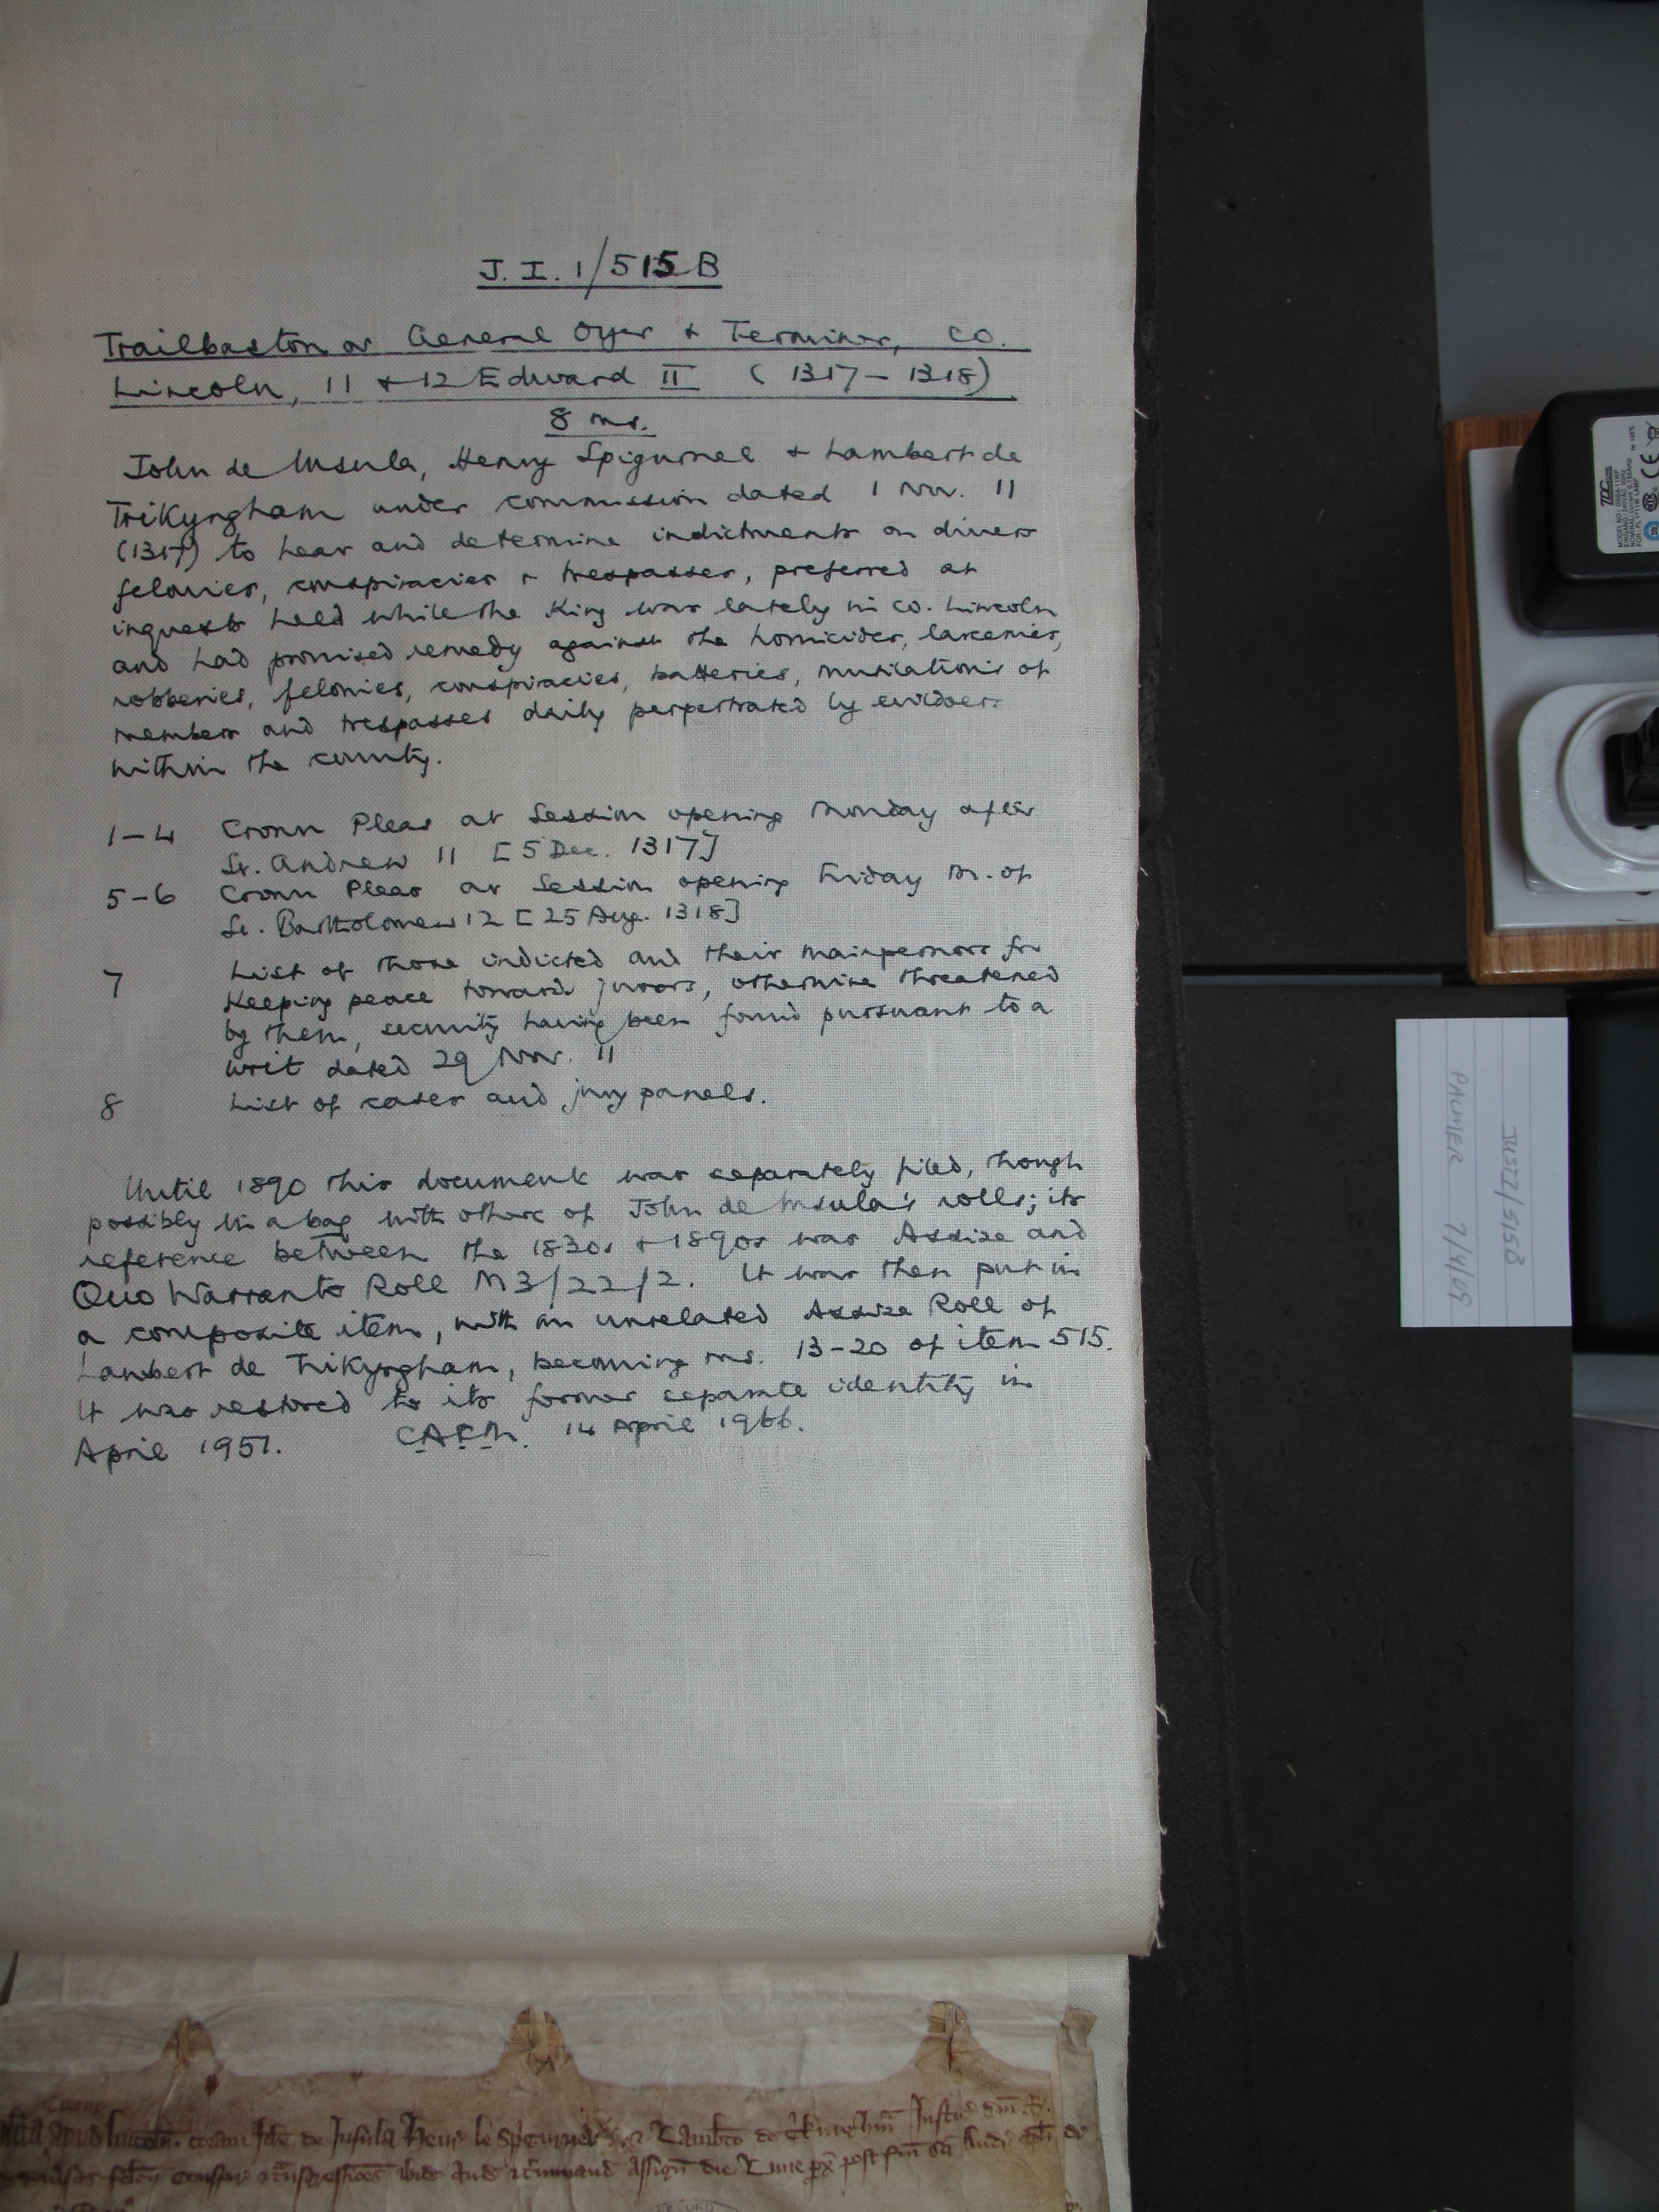 J.I. 1/515B
Trailbaston or General Oyer & Terminer, co.
Lincoln, 11 & 12 Edward II (1317-1318)
8 ms.
John de Insula, Henry Spigurnel & Lambert de
Trikyngham under commission dated 1 Nov. 11
(1317) to hear and determine indictments on divers
felonies, conspiracies & trespasses, preferred at
inquests held while the King was lately in co. Lincoln
and had promised remedy against the homicides, larcenies,
robberies, felonies, conspiracies, batteries, mutilations of
members and trespasses daily perpetrated by evildoers
within the county.
1-4 Crown Pleas at Session opening Monday after
St. Andrew 11 [5 Dec. 1317]
5-6 Crown Pleas at Session opening Friday m. of
St. Bartholomew 12 [25 Aug. 1318]
7 List of those indicted and their mainpernors for
keeping peace towards jurors, otherwise threatened
by them, security having been found pursuant to a
writ dated 29 Nov. 11
8 List of cases and jury panels.
Until 1890 this document was separately filed, though
possibly in a bag with others of John de Insula's rolls; its
reference between the 1830s & 1890s was Assize and
Quo Warranto Roll M3/22/2. It was then put in
a composite item, with an unrelated Assize Roll of
Lambert de Trikyngham, becoming ms. 13-20 of item 515.
It was restored to its former separate identity in
April 1951. C.A.F.M. 14 April 1966.
JUST1/515B
PALMER 7/4/09
lincoln coram Johe de Insula Henr le
die Lune